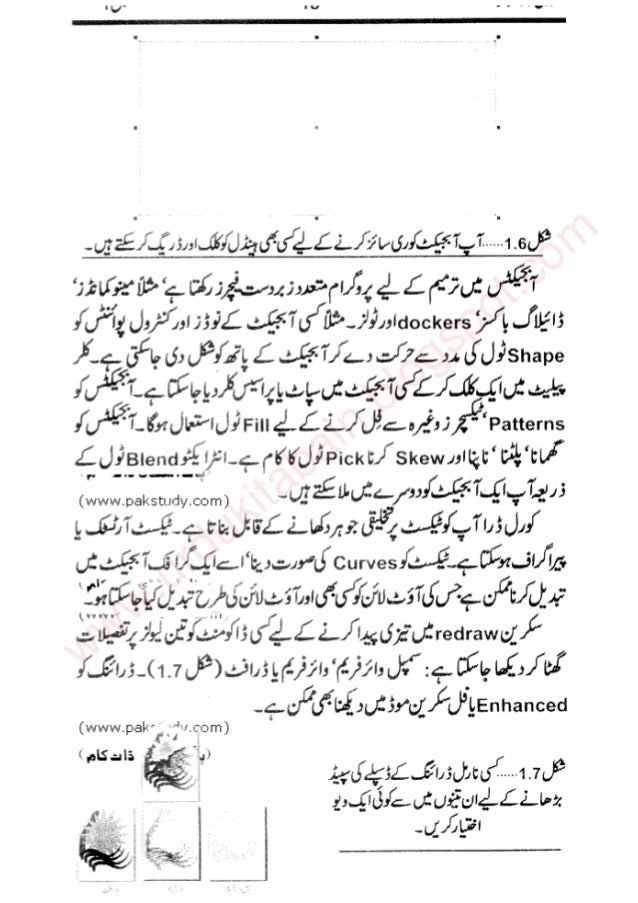 شکل 1.6......آپ آبجیکٹ کو ری سائز کرنے کے لیے کسی بھی ہینڈل کو کلک اور ڈریگ کر سکتے ہیں۔
آبجیکٹس میں ترمیم کے لیے پروگرام متعدد زبردست فیچرز رکھتا ہے‘ مثلاً مینو کمانڈز‘
ڈائیلاگ باکسز‘ dockers اور ٹولز۔ مثلاً کسی آبجیکٹ کے نوڈز اور کنٹرول پوائنٹس کو
Shape ٹول کی مدد سے حرکت دے کر آبجیکٹ کے پاتھ کو شکل دی جا سکتی ہے۔ کلر
پیلیٹ میں ایک کلک کر کے کسی آبجیکٹ میں سپاٹ یا پراسیس کلر دیا جا سکتا ہے۔ آبجیکٹس کو
Patterns‘ ٹیکسچرز وغیرہ سے فِل کرنے کے لیے Fill ٹول استعمال ہوگا۔ آبجیکٹس کو
گھمانا‘ پلٹنا‘ ناپنا اور Skew کرنا Pick ٹول کا کام ہے۔ انٹرایکٹو Blend ٹول کے
ذریعہ آپ ایک آبجیکٹ کو دوسرے میں ملا سکتے ہیں۔
(www.pakstudy.com)
کورل ڈرا آپ کو ٹیکسٹ پر تخلیقی جوہر دکھانے کے قابل بناتا ہے۔ ٹیکسٹ آرٹسٹک یا
پیراگراف ہو سکتا ہے۔ ٹیکسٹ کو Curves کی صورت دینا‘ اسے ایک گرافک آبجیکٹ میں
تبدیل کرنا ممکن ہے جس کی آؤٹ لائن کو کسی بھی اور آؤٹ لائن کی طرح تبدیل کیا جا سکتا ہو۔
سکرین redraw میں تیزی پیدا کرنے کے لیے کسی ڈاکومنٹ کو تین لیولز پر تفصیلات
گھٹا کر دیکھا جا سکتا ہے: سمپل وائر فریم‘ وائر فریم یا ڈرافٹ (شکل 1.7)۔ ڈرائنگ کو
Enhanced یا فل سکرین موڈ میں دیکھنا بھی ممکن ہے۔
(www.pakstudy.com)
ڈاٹ کام)
شکل 1.7......کسی نارمل ڈرائنگ کے ڈسپلے کی سپیڈ
بڑھانے کے لیے ان تینوں میں سے کوئی ایک ویو
اختیار کریں۔